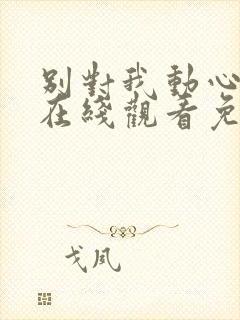 别對我動心
在綫觀看免
戈風